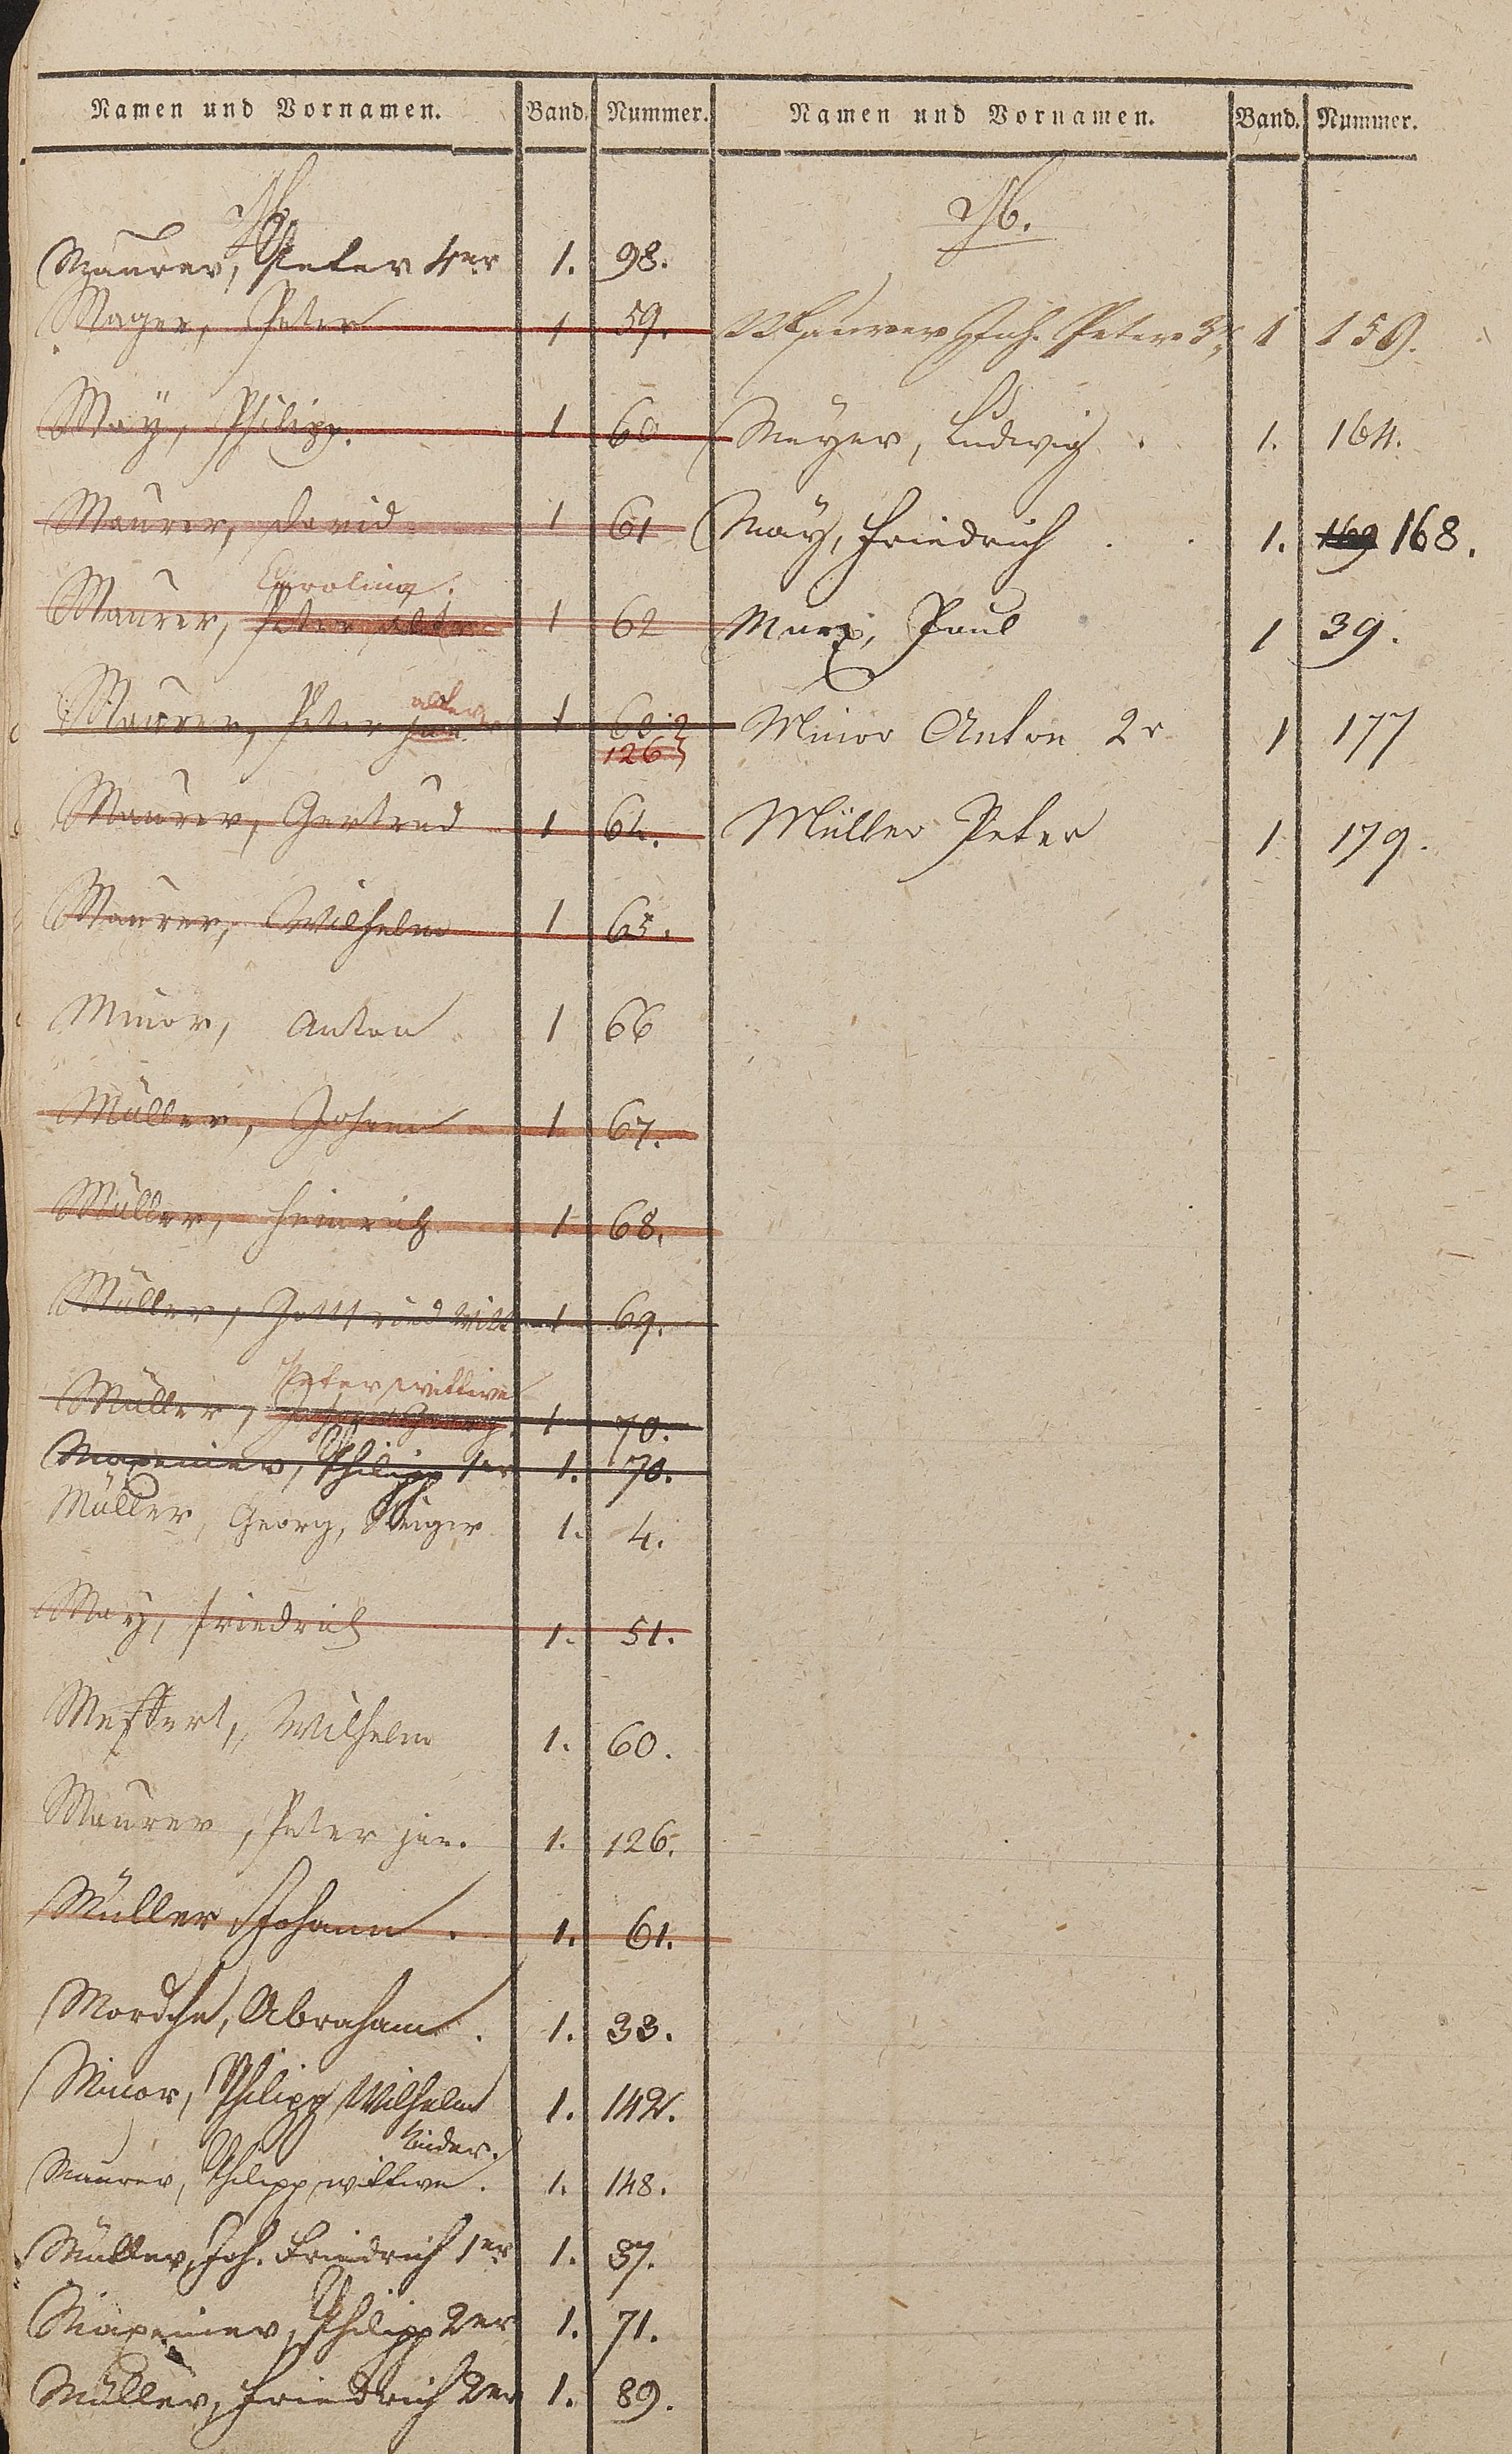 Namen und Vornamen. Band. Nummer.
M.
Maurer, Peter 4er 1. 98.
Mager, Peter 1 59.
May, Philipp. 1 60
Maurer, David 1 61
Caroline.
Maurer, Peter 1 62
älter
Maurer, Peter jun. 1
126
Maurer, Gertrud 1 64.
Maurer, Wilhelm 1 65.
Minor, Anton 1 66
Müller, Johann 1 67.
Müller, Heinrich 1 68.
Müller, Gottfried Witt 1 69.
Peter wittwe
Müller, Georg. 1 70.
Maxeiner, Philipp 1er 1. 70.
Müller, Georg, Steiger 1. 4.
May, Friedrich 1. 51.
Meffert, Wilhelm 1. 60.
Maurer, Peter jun. 1. 126.
Müller, Johann. 1. 61.
Mordche, Abraham. 1. 33.
Minor, Philipp Wilhelm 1. 142.
Kinder.
Maurer, Philipp wittwe. 1. 148.
Müller, Joh. Friedrich 1er 1. 37.
Maxeiner, Philipp 2er 1. 71.
Müller, Friedrich 2er 1. 89.
Namen und Vornamen. Band. Nummer.
M.
Maurer Joh. Peter 3r 1 159.
Meyer, Ludwig. 1. 164.
May, Friedrich . . 1. 169 168.
Marx, Paul 1 39.
Minor Anton 2r 1 177
Müller Peter 1 179.